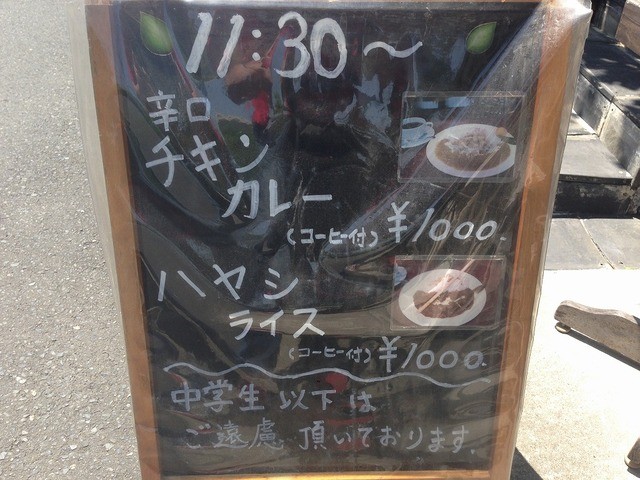 11:30〜
辛口
チキン
カレー
(コーヒー付) ¥1000.
ハヤシ
ライス
(コーヒー付) ¥1000.
中学生以下は
ご遠慮頂いております。